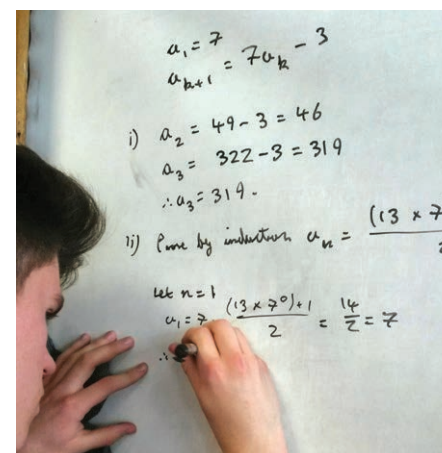 a₁ = 7
aₖ₊₁ = 7aₖ - 3
i) a₂ = 49 - 3 = 46
a₃ = 322 - 3 = 319
∴ a₃ = 319.
ii) Prove by induction aₙ = (13 × 7
Let n = 1
a₁ = 7 (13 × 7⁰) + 1 / 2 = 14 / 2 = 7
∴